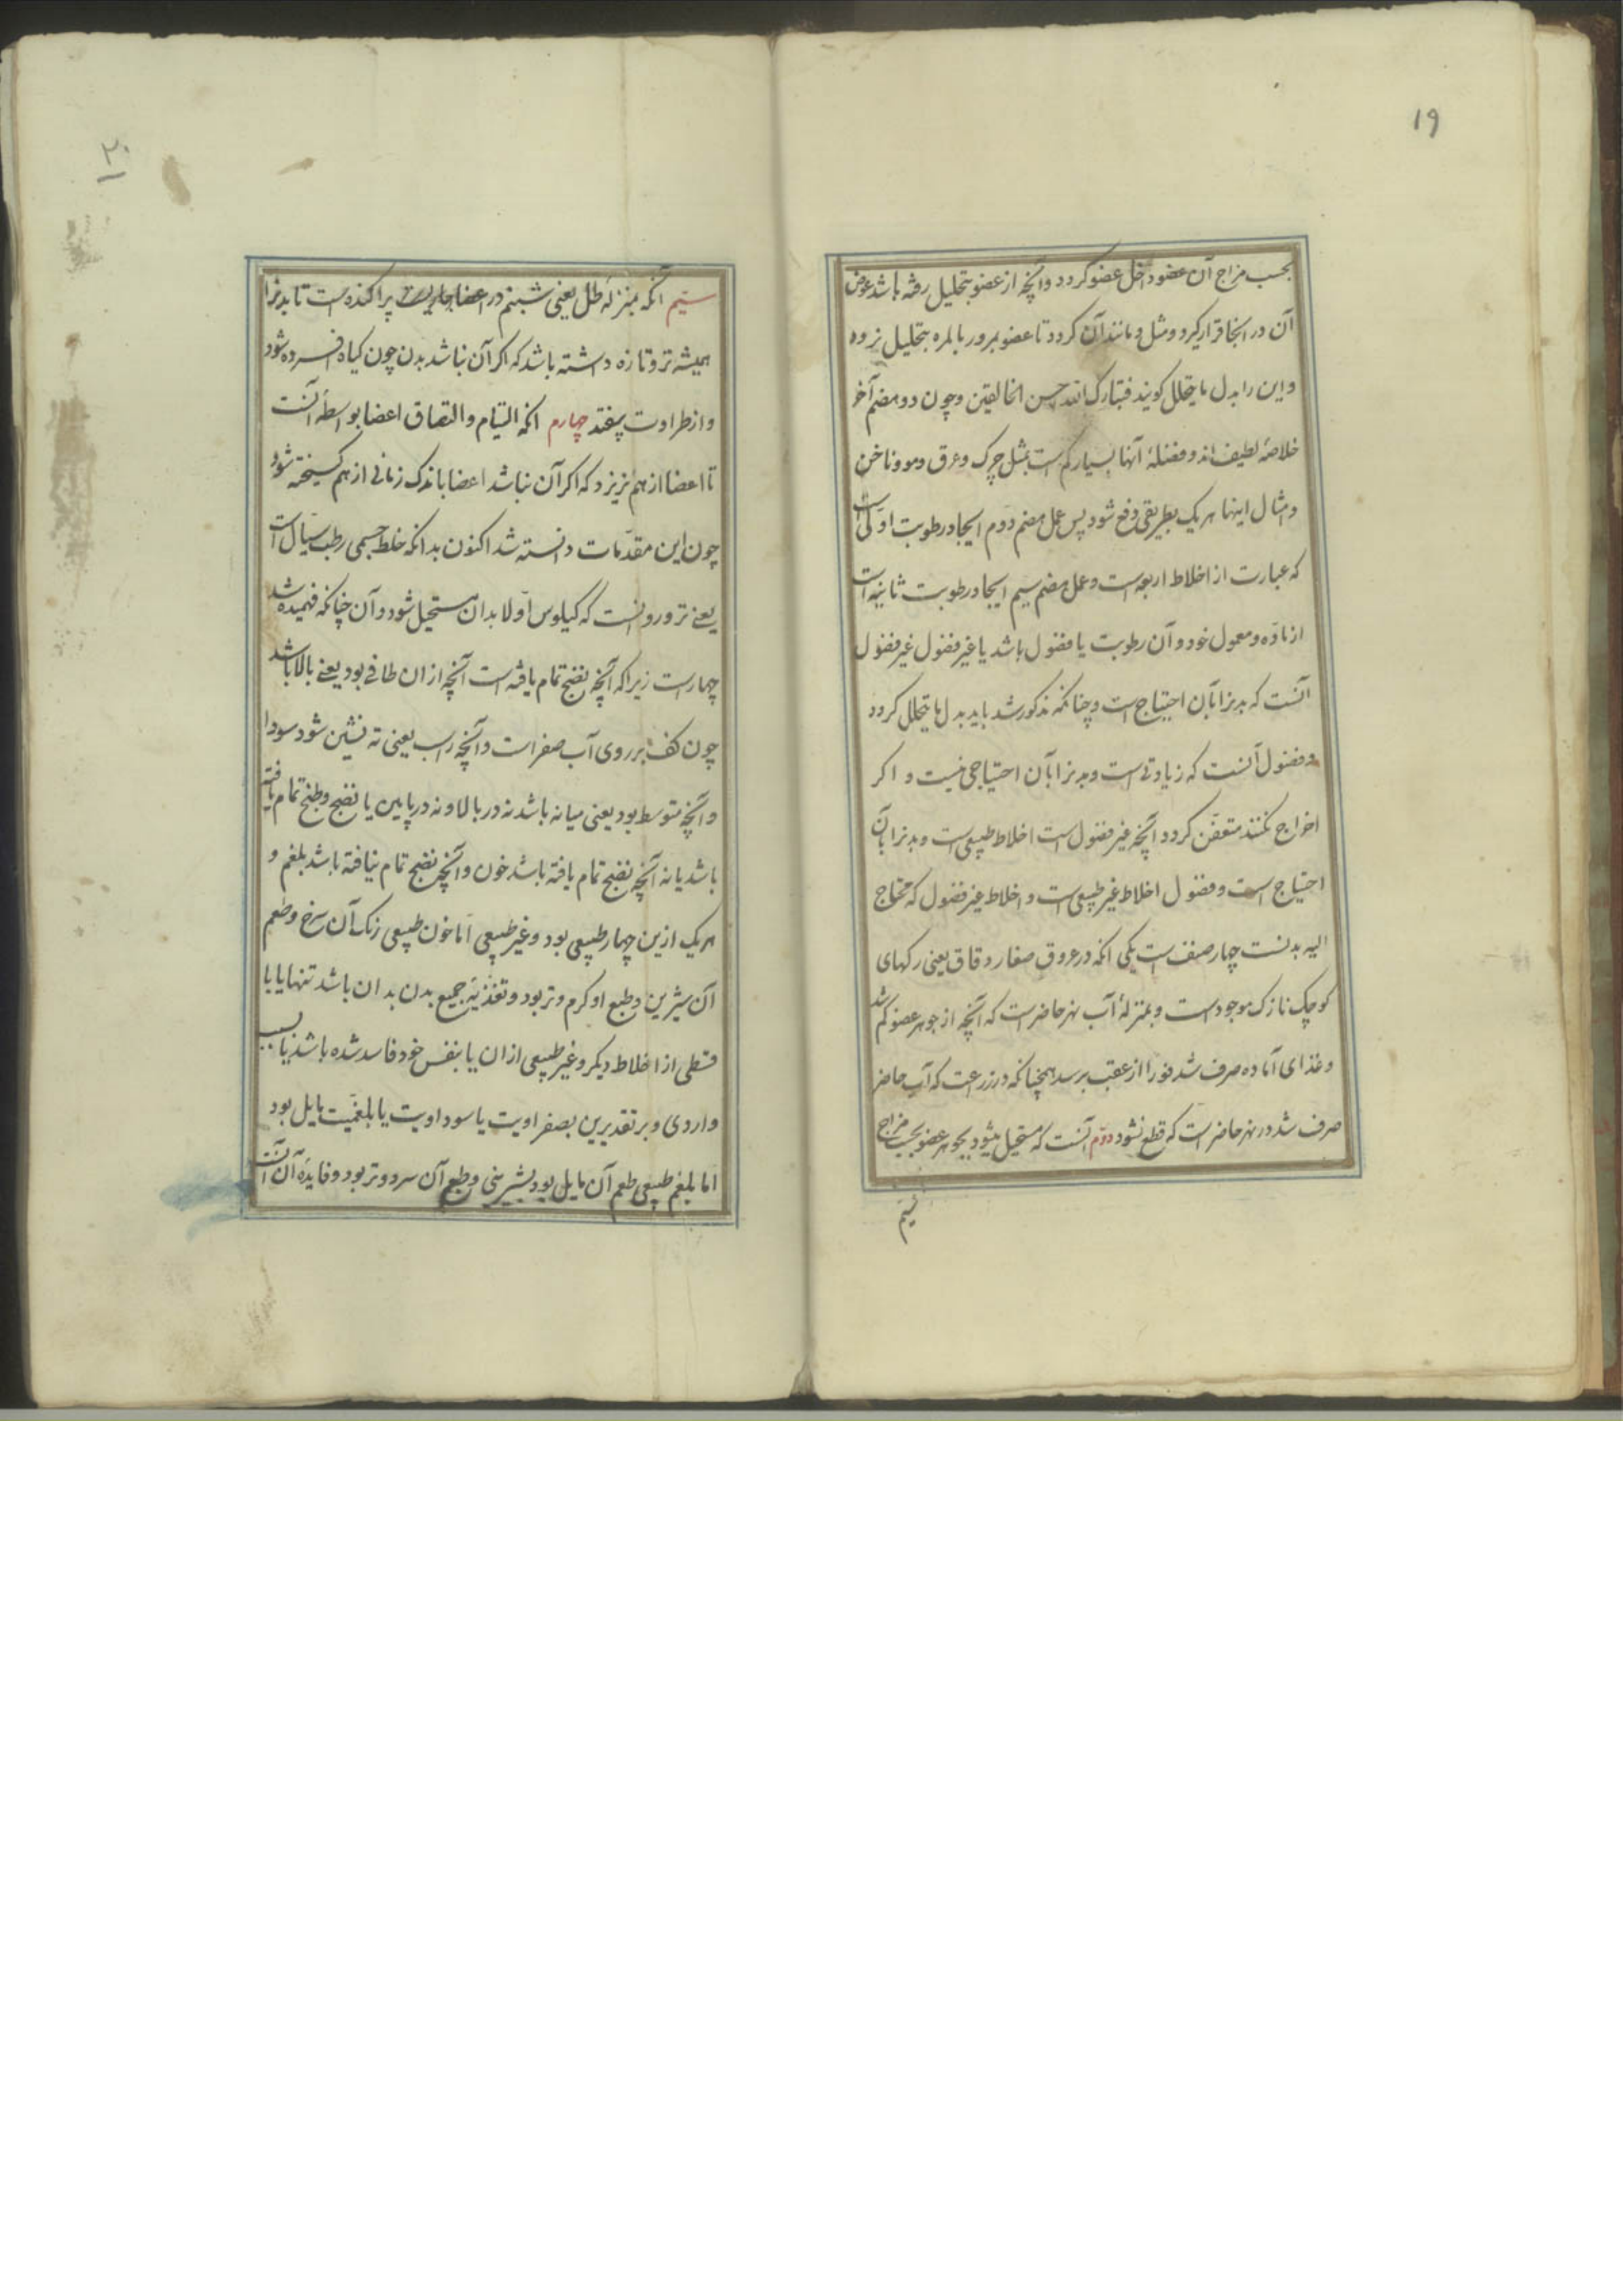 ۱۹
بحسب مزاج آن عضو داخل عضو کردد و آنچه از عضو بتحلیل رفته باشد عوض
آن در انجا قرار کیرد و مثل و مانند آن کردد تا عضو بمرور بالمره بتحلیل نرود
و این را بدل ما یتحلل کویند فتبارک الله احسن الخالقین و چون دو هضم آخر
خلاصهٔ لطیف‌اند و فضلهٔ آنها بسیار کم است بمثل چرک و عرق و مو و ناخن
و امثال اینها هر یک بطریقی دفع شود پس عمل هضم دوم ایجاد رطوبت اولی است
که عبارت از اخلاط اربعه است و عمل هضم سیم ایجاد رطوبت ثانیه است
از ماده و معمول خود و آن رطوبت یا فضول باشد یا غیر فضول غیر فضول
آنست که بدنرا بآن احتیاج است و چنانکه مذکور شد باید بدل ما یتحلل کردد
و فضول آنست که زیادتی است و بدنرا بآن احتیاجی نیست و اکر
اخراج نکنند متعفن کردد آنچه غیر فضول است اخلاط طبیعی است و بدنرا بآن
احتیاج است و فضول اخلاط غیر طبیعی است و اخلاط غیر فضول که محتاج
الیه بدنست چهار صنف است یکی آنکه در عروق صغار دقاق یعنی رکهای
کوچک نازک موجود است و بمنزلهٔ آب نهر حاضر است که آنچه از جوهر عضو کم شد
و غذای آماده صرف شد فورا از عقب برسد همچنانکه در زراعت که آب حاضر
صرف شد در نهر حاضر است که قطع نشود دوم آنست که مستحیل میشود بجوهر عضو بحسب مزاج
سیم
۲۰
سیم آنکه بمنزلهٔ طل یعنی شبنم در اعضا پراکنده است تا بدنرا
همیشه تر و تازه داشته باشد که اکر آن نباشد بدن چون کیاه افسرده شود
و از طراوت بیفتد چهارم آنکه التیام و التصاق اعضا بواسطهٔ آنست
تا اعضا از هم نریزد که اکر آن نباشد اعضا باندک زمانی از هم کسیخته شود
چون این مقدمات دانسته شد اکنون بدانکه خلط جسمی رطب سیال است
یعنی تر و روانست که کیلوس اولا بدان مستحیل شود و آن چنانکه فهمیده شد
چهار است زیرا که آنچه نضج تمام یافته است آنچه از ان طافی بود یعنی بالا باشد
چون کف بر روی آب صفرا است و آنچه راسب یعنی ته نشین شود سودا
و آنچه متوسط بود یعنی میانه باشد نه در بالا و نه در پایین یا نضج و طبخ تمام یافته
باشد یا نه آنچه نضج تمام یافته باشد خون و آنچه نضج تمام نیافته باشد بلغم و
هر یک ازین چهار طبیعی بود و غیر طبیعی اما خون طبیعی رنک آن سرخ و طعم
آن شیرین و طبع او کرم و تر بود و تغذیهٔ جمیع بدن بدان باشد تنها یا با
قسطی از اخلاط دیکر و غیر طبیعی از ان یا بنفس خود فاسد شده باشد یا بسبب
واردی و بر تقدیرین بصفراویت یا سوداویت یا بلغمیت مایل بود
اما بلغم طبیعی طعم آن مایل بود بشیرینی و طبع آن سرد و تر بود و فایدهٔ آن آنست